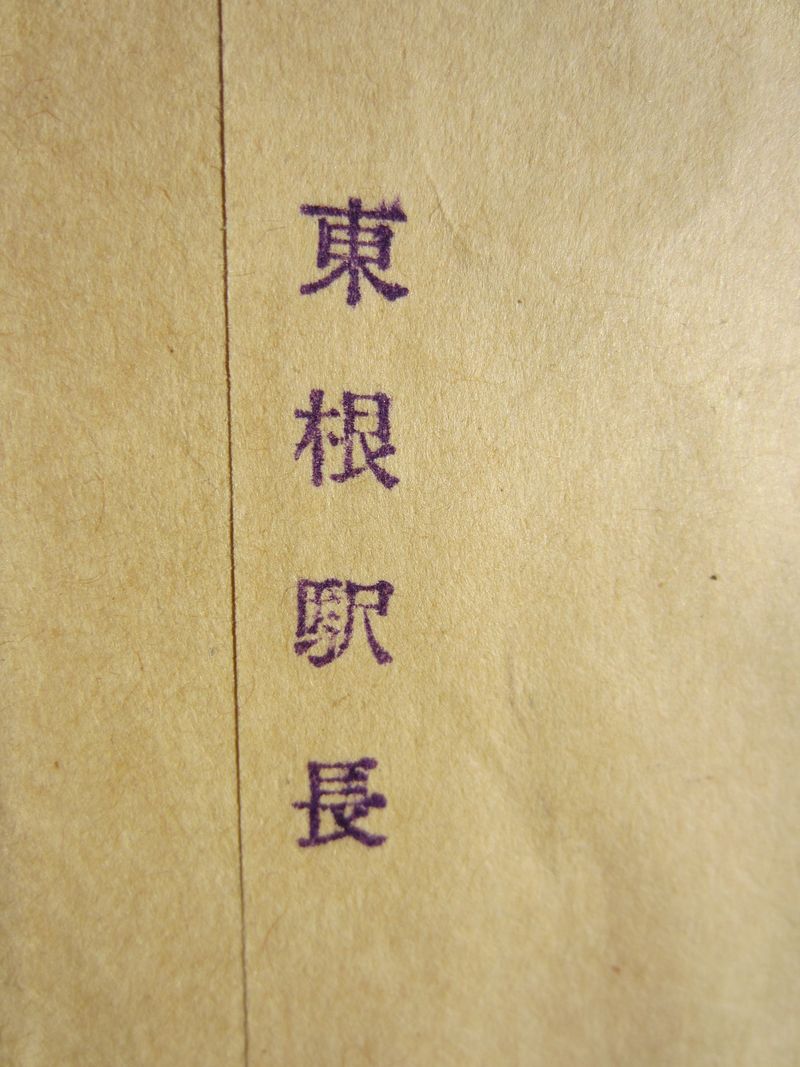 東根駅長